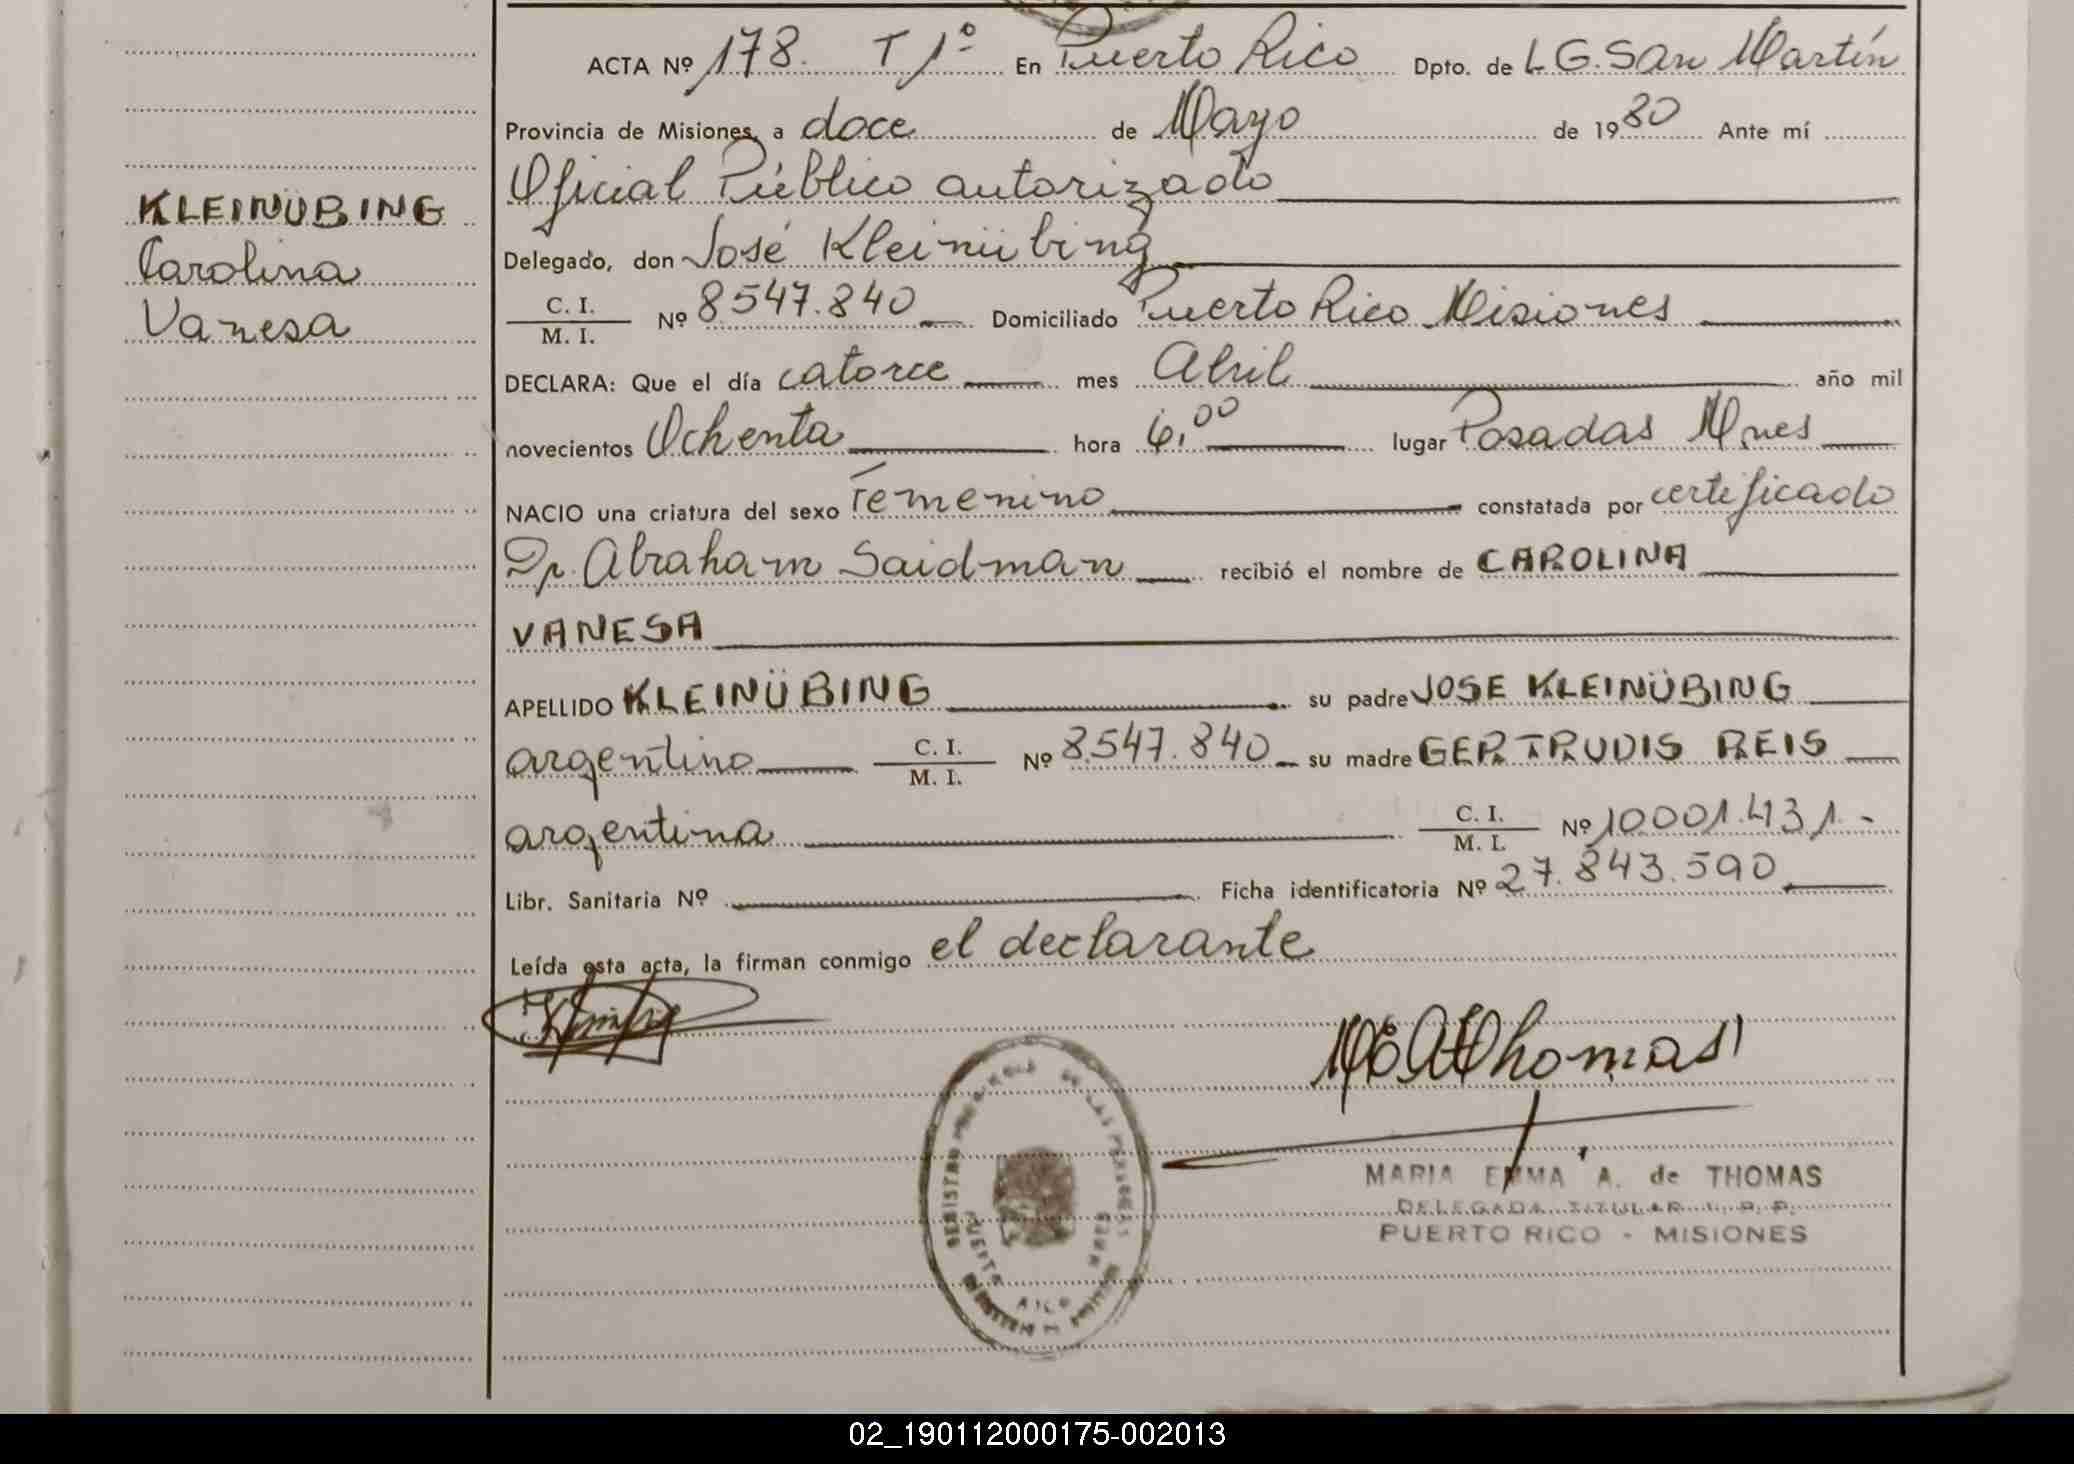 ACTA Nº 178. T 1º En Puerto Rico Dpto. de L G. San Martín
Provincia de Misiones, a doce de Mayo de 1980 Ante mí
Oficial Público autorizado
Delegado, don José Kleinübing
C. I.
M. I. Nº 8547.840 Domiciliado Puerto Rico Misiones
DECLARA: Que el día catorce mes Abril año mil
novecientos Ochenta hora 6,00 lugar Posadas Mnes
NACIO una criatura del sexo Femenino constatada por certificado
Dr. Abraham Saidman recibió el nombre de CAROLINA
VANESA
APELLIDO KLEINÜBING su padre JOSE KLEINÜBING
argentino C. I.
M. I. Nº 8.547.840 su madre GERTRUDIS REIS
argentina C. I.
M. I. Nº 10.001.431.-
Libr. Sanitaria Nº Ficha identificatoria Nº 27.843.590
Leída esta acta, la firman conmigo el declarante
KLEINÜBING
Carolina
Vanesa
M E A Thomas
REGISTRO PROVINCIAL DE LAS PERSONAS
PUERTO RICO
MARIA EMMA A. de THOMAS
DELEGADA TITULAR R. P. P.
PUERTO RICO - MISIONES
02_190112000175-002013